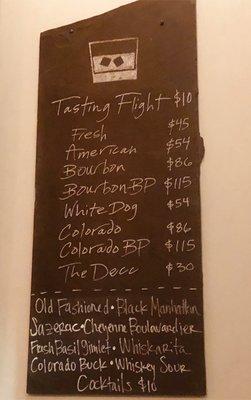 Tasting Flight $10
Fresh $45
American $54
Bourbon $86
Bourbon BP $115
White Dog $54
Colorado $86
Colorado BP $115
The Decc $30
Old Fashioned • Black Manhattan
Sazerac • Cheyenne Boulevardier
Fresh Basil Gimlet • Whiskarita
Colorado Buck • Whiskey Sour
Cocktails $10